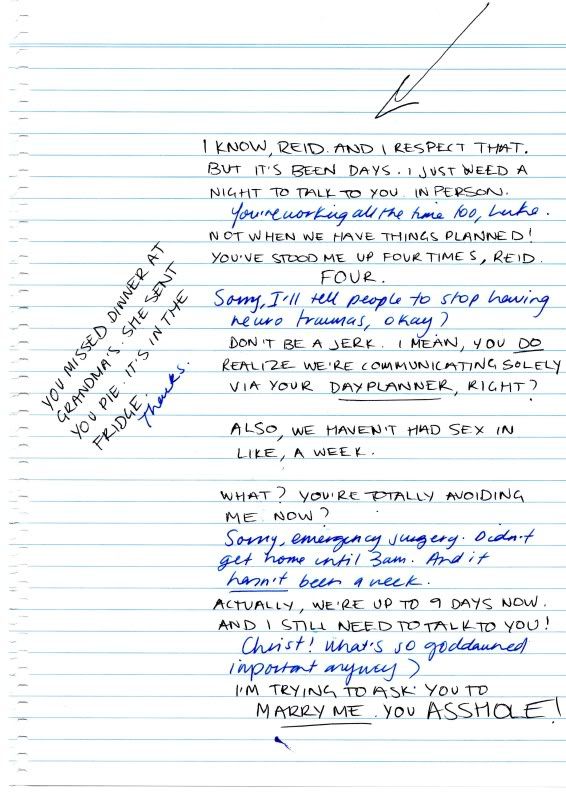 I KNOW, REID. AND I RESPECT THAT.
BUT IT'S BEEN DAYS. I JUST NEED A
NIGHT TO TALK TO YOU. IN PERSON.
You're working all the time too, Luke.
NOT WHEN WE HAVE THINGS PLANNED!
YOU'VE STOOD ME UP FOUR TIMES, REID.
FOUR.
Sorry, I'll tell people to stop having
neuro traumas, okay?
DON'T BE A JERK. I MEAN, YOU DO
REALIZE WE'RE COMMUNICATING SOLELY
VIA YOUR DAYPLANNER, RIGHT?
YOU MISSED DINNER AT
GRANDMA'S. SHE SENT
YOU PIE. IT'S IN THE
FRIDGE.
Thanks.
ALSO, WE HAVEN'T HAD SEX IN
LIKE, A WEEK.
WHAT? YOU'RE TOTALLY AVOIDING
ME NOW?
Sorry, emergency surgery. Didn't
get home until 3am. And it
hasn't been a week.
ACTUALLY, WE'RE UP TO 9 DAYS NOW.
AND I STILL NEED TO TALK TO YOU!
Christ! What's so goddamned
important anyway?
I'M TRYING TO ASK YOU TO
MARRY ME. YOU ASSHOLE!